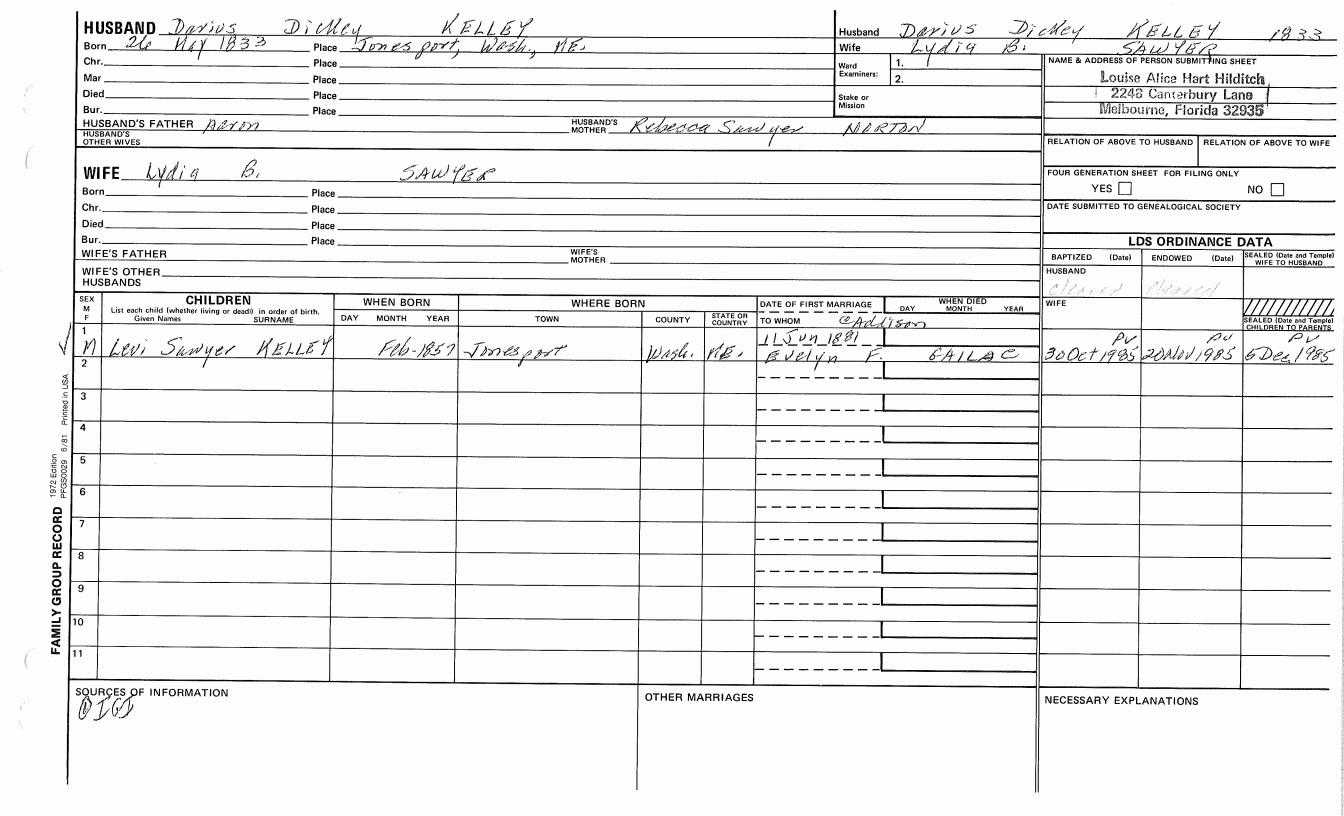 HUSBAND Darius Dickey KELLEY
Born 26 May 1833 Place Jonesport, Wash., ME.
Chr. Place
Mar Place
Died Place
Bur. Place
HUSBAND'S FATHER Aaron HUSBAND'S MOTHER Rebecca Sawyer NORTON
HUSBAND'S OTHER WIVES
Husband Darius Dickey KELLEY 1833
Wife Lydia B. SAWYER
Ward Examiners: 1.
2.
Stake or Mission
NAME & ADDRESS OF PERSON SUBMITTING SHEET
Louise Alice Hart Hilditch
2248 Canterbury Lane
Melbourne, Florida 32935
RELATION OF ABOVE TO HUSBAND RELATION OF ABOVE TO WIFE
FOUR GENERATION SHEET FOR FILING ONLY
YES NO
DATE SUBMITTED TO GENEALOGICAL SOCIETY
WIFE Lydia B. SAWYER
Born Place
Chr. Place
Died Place
Bur. Place
WIFE'S FATHER WIFE'S MOTHER
WIFE'S OTHER HUSBANDS
LDS ORDINANCE DATA
BAPTIZED (Date) ENDOWED (Date) SEALED (Date and Temple) WIFE TO HUSBAND
HUSBAND
Cleared Cleared
WIFE
SEALED (Date and Temple) CHILDREN TO PARENTS
SEX M F CHILDREN List each child (whether living or dead) in order of birth. Given Names SURNAME WHEN BORN DAY MONTH YEAR WHERE BORN TOWN COUNTY STATE OR COUNTRY DATE OF FIRST MARRIAGE TO WHOM WHEN DIED DAY MONTH YEAR
@Addison
1 11 Jun 1881 PV PV PV
M Levi Sawyer KELLEY Feb-1857 Jonesport Wash. ME. Evelyn F. 30 Oct 1985 20 Nov 1985 5 Dec 1985
2
3
4
5
6
7
8
9
10
11
FAMILY GROUP RECORD 1972 Edition PFGS0029 6/81 Printed in USA
SOURCES OF INFORMATION
IGI
OTHER MARRIAGES
NECESSARY EXPLANATIONS